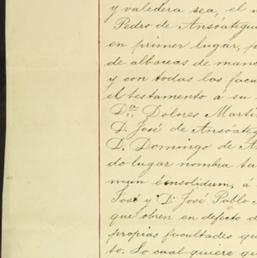 y valedera sea, el
Pedro de Ansoátegui
en primer lugar, p
de albaceas de man
y con todas las facu
el testamento á su
Dña Dolores Marti
D. José de Ansoáteg
D. Domingo de A
do lugar nombra ta
mun é insolidum, a
José y D. José Pablo
que obren en defecto d
propias facultades qu
to. Lo cual quiere qu